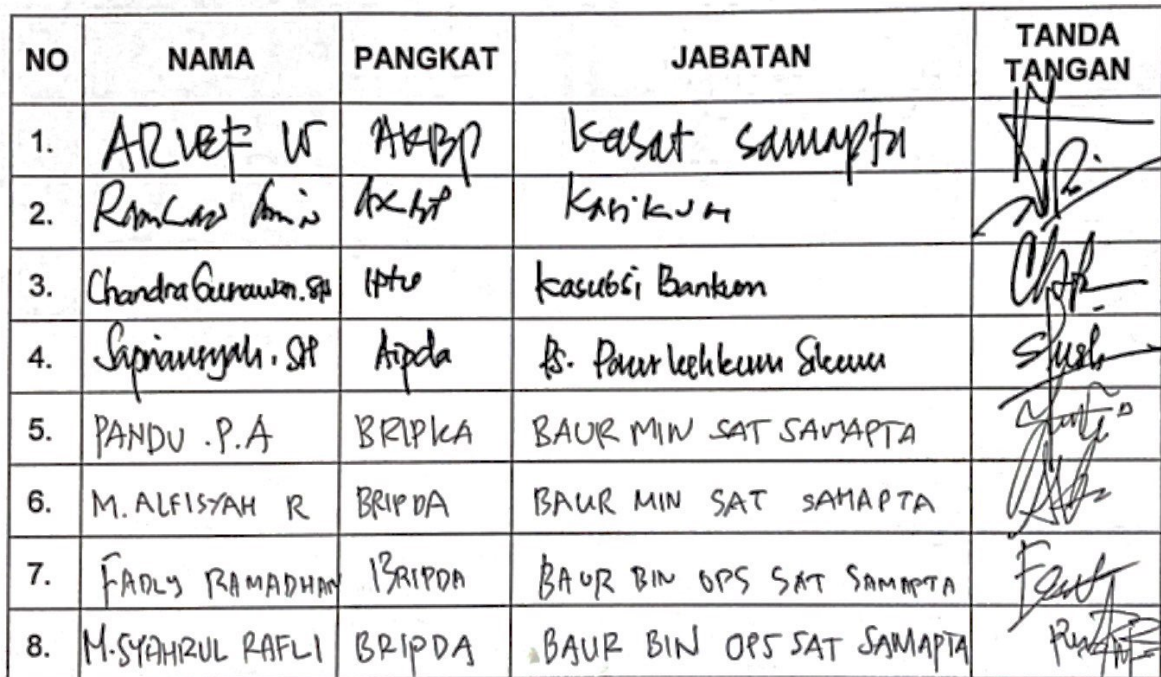 NO NAMA PANGKAT JABATAN TANDA TANGAN
1. ARIEF W AKBP Kasat Samapta
2. AKBP Kasikum
3. Chandra Gunawan. SH Iptu Kasubsi Bankum
4. Sapriansyah. SH Aipda Ps. Paur
5. PANDU .P.A BRIPKA BAUR MIN SAT SAMAPTA
6. M. ALFISYAH R BRIPDA BAUR MIN SAT SAMAPTA
7. FADLY RAMADHAN BRIPDA BAUR BIN OPS SAT SAMAPTA
8. M.SYAHRUL RAFLI BRIPDA BAUR BIN OPS SAT SAMAPTA